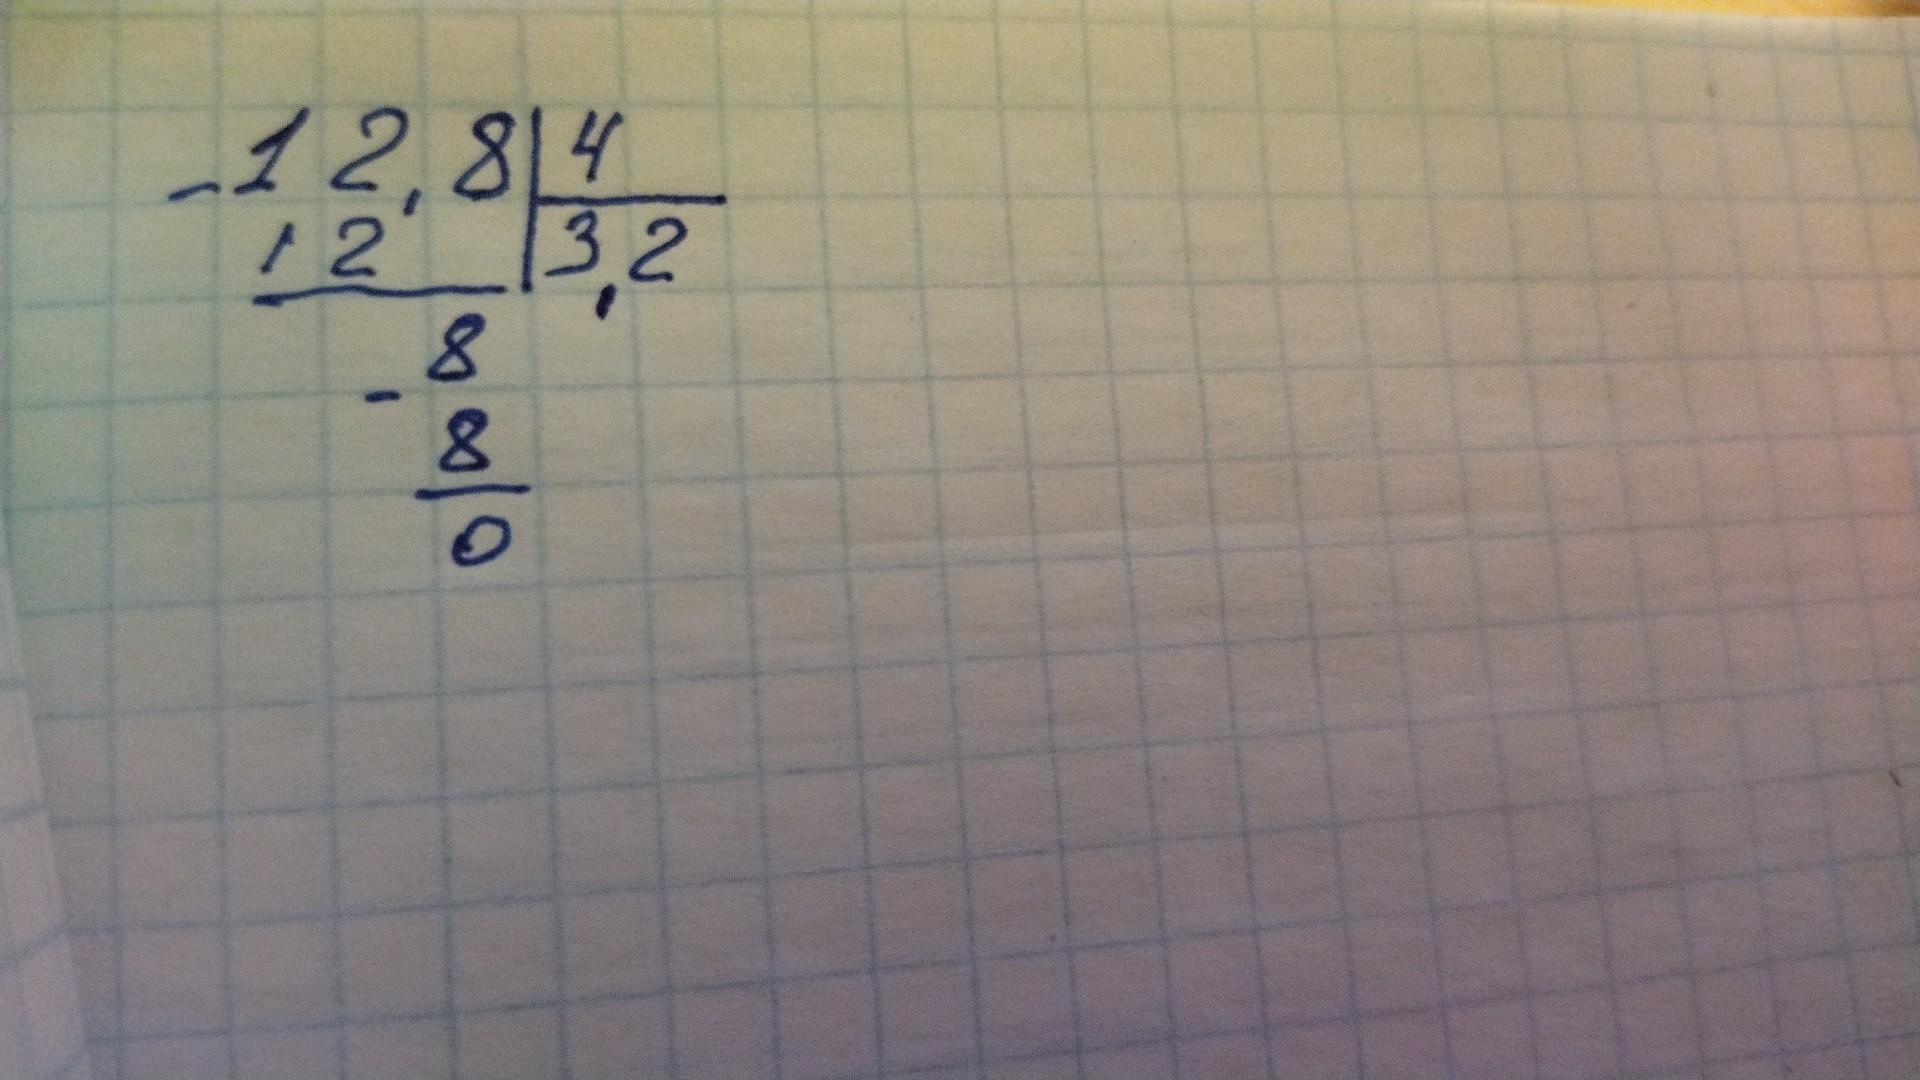 -12,8|4
12 |3,2
8
-
8
0